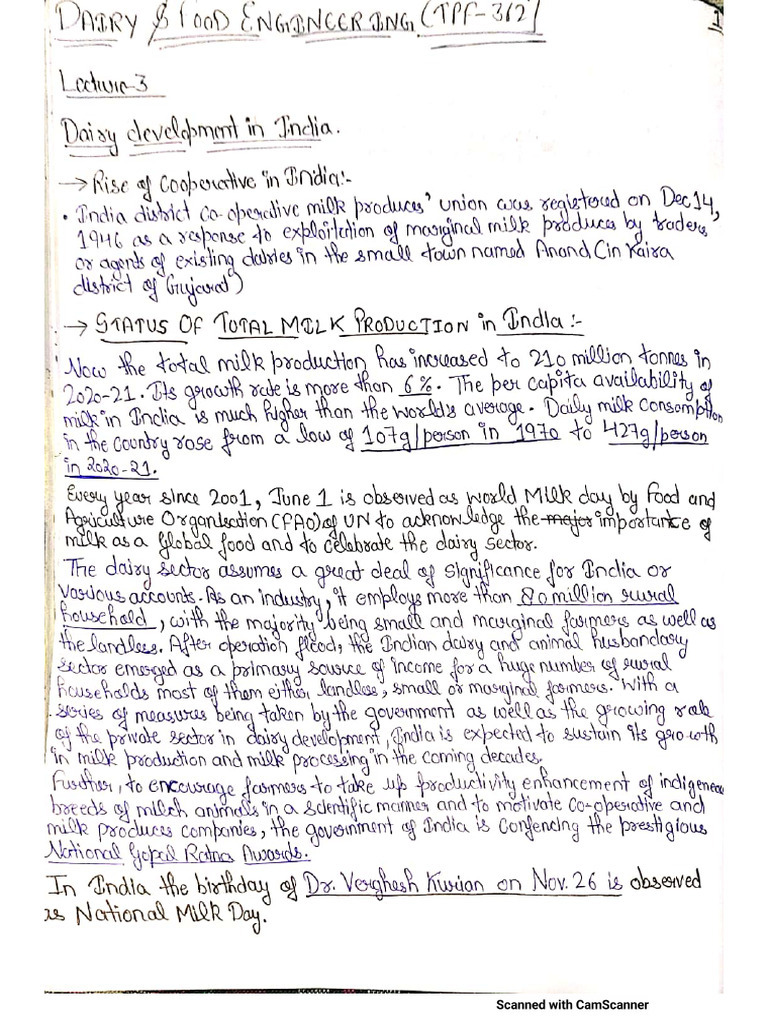 DAIRY & FOOD ENGINEERING (TPF-312) I
Lecture-3
Dairy development in India.
→ Rise of Cooperative in India:-
• India district co-operative milk produces' union was registered on Dec 14,
1946 as a response to exploitation of marginal milk produces by traders
or agents of existing dairies in the small town named Anand (in Kaira
district of Gujarat)
→ STATUS OF TOTAL MILK PRODUCTION in INDIA :-
Now the total milk production has increased to 210 million tonnes in
2020-21. Its growth rate is more than 6%. The per capita availability of
milk in India is much higher than the world's average. Daily milk consomption
in the country rose from a low of 107g/person in 1970 to 427g/person
in 2020-21.
Every year since 2001, June 1 is observed as world Milk day by Food and
Agriculture Organisation (FAO) of UN to acknowledge the major importante of
milk as a global food and to celebrate the dairy sector.
The dairy sector assumes a great deal of significance for India or
various accounts. As an industry, it employs more than 80 million rural
household, with the majority being small and marginal farmers as well as
the landless. After operation flood, the Indian dairy and animal husbandary
sector emerged as a primary source of income for a huge number of rural
households most of them either landless, small or marginal farmers. With a
series of measures being taken by the government as well as the growing role
of the private sector in dairy development, India is expected to sustain its growth
in milk production and milk processing in the coming decades.
Further, to encourage farmers to take up productivity enhancement of indigeneou
breeds of milch animals in a scientific manner and to motivate co-operative and
milk produces companies, the government of India is confencing the prestigious
National Gopal Ratna Awards.
In India the birthday of Dr. Verghesh Kurian on Nov. 26 is observed
as National Milk Day.
Scanned with CamScanner